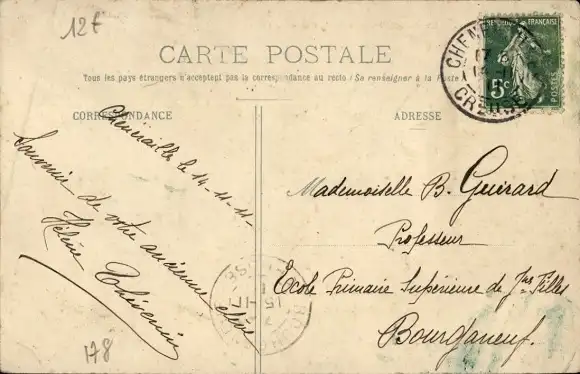 12f
CARTE POSTALE
Tous les pays étrangers n'acceptent pas la correspondance au recto (Se renseigner à la Poste)
CORRESPONDANCE
ADRESSE
REPUBLIQUE FRANÇAISE
5c
POSTES
CREUSE
Chénérailles le 14-11-11-
Souvenir de votre ancienne élève
Hélène Thévenin
Mademoiselle B. Guérard
Professeur
Ecole Primaire Supérieure de Jnes Filles
Bourganeuf.
15-11
178